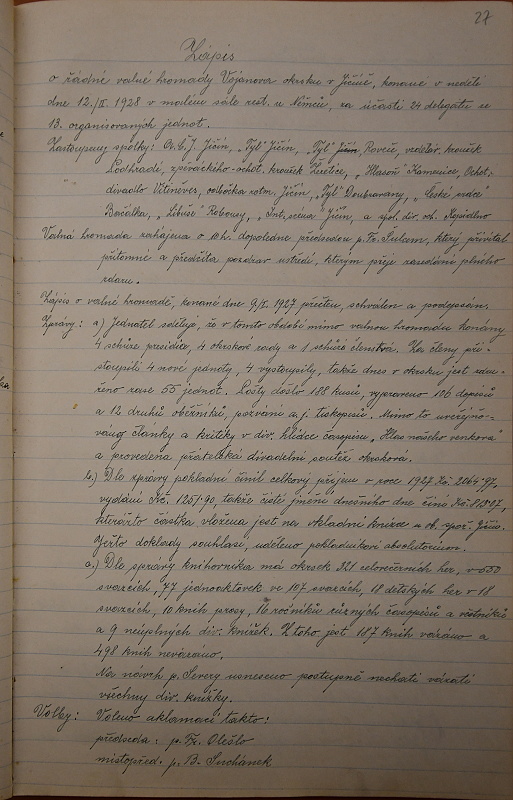 27
Zápis
o řádné valné hromady Vojanova okrsku v Jičíně, konané v neděli
dne 12./II. 1928 v malém sále rest. u Němců, za účasti 24 delegátů ze
13. organisovaných jednot.
Zastoupeny spolky: Jičín, "Tyl" Jičín, "Tyl" Jičín, Rovče, vzděl. kroužek
Podhradí, zpěváckého-ochot. kroužek Žeretice, "Hlasoň" Kamenice, Ochot.
divadlo Vitiněves, odbočka rotm. Jičín, "Tyl" Doubravany, "České srdce"
Bačalka, "Libuše" Robousy, "Int. scena" Jičín, a spol. div. och. Kopidlno
Valná hromada zahájena o 10 h. dopoledne předsedou p. Fr. Šulcem, který přivítal
přítomné a předčítá pozdrav ústředí, kterým přeje zasedání plného
zdaru.
Zápis o valné hromadě, konané dne 9/I. 1927 přečten, schválen a podepsán.
Zprávy: a) Jednatel sděluje, že v tomto období mimo valnou hromadu konány
4 schůze presidia, 4 okrskové rady a 1 schůze členstva. Za členy při-
stoupili 4 nové jednoty, 4 vystoupily, takže dnes v okrsku jest sdru-
ženo zase 55 jednot. Pošty došlo 188 kusů, vypraveno 106 dopisů
a 12 druhů oběžníků, pozvání a j. tiskopisů. Mimo to uveřejňo-
vány články a kritiky v div. hlídce časopisu "Hlas našeho venkova"
a provedena přátelská divadelní soutěž okrsková.
b.) Dle zprávy pokladní činil celkový příjem v roce 1927 Kč. 2064.97,
vydání Kč. 1251.90, takže čisté jmění dnešního dne činí Kč. 813.07,
kterážto částka vložena jest na vkladní knížce ob. spoř. Jičín.
Ježto doklady souhlasí, uděleno pokladníkovi absolutorium.
c.) Dle zprávy knihovníka má okrsek 321 celovečerních her, v 550
svazcích, 77 jednoaktovek ve 107 svazcích, 18 dětských her v 18
svazcích, 10 knih prosy, 16 ročníků různých časopisů a věstníků
a 9 neúplných div. knížek. Z toho jest 187 knih vázáno a
498 knih nevázáno.
Na návrh p. Severy usneseno postupně nechati vázati
všechny div. knížky.
Volby: Voleno aklamací takto:
předseda: p. Fr. Olešlo
místopřed. p. B. Suchánek